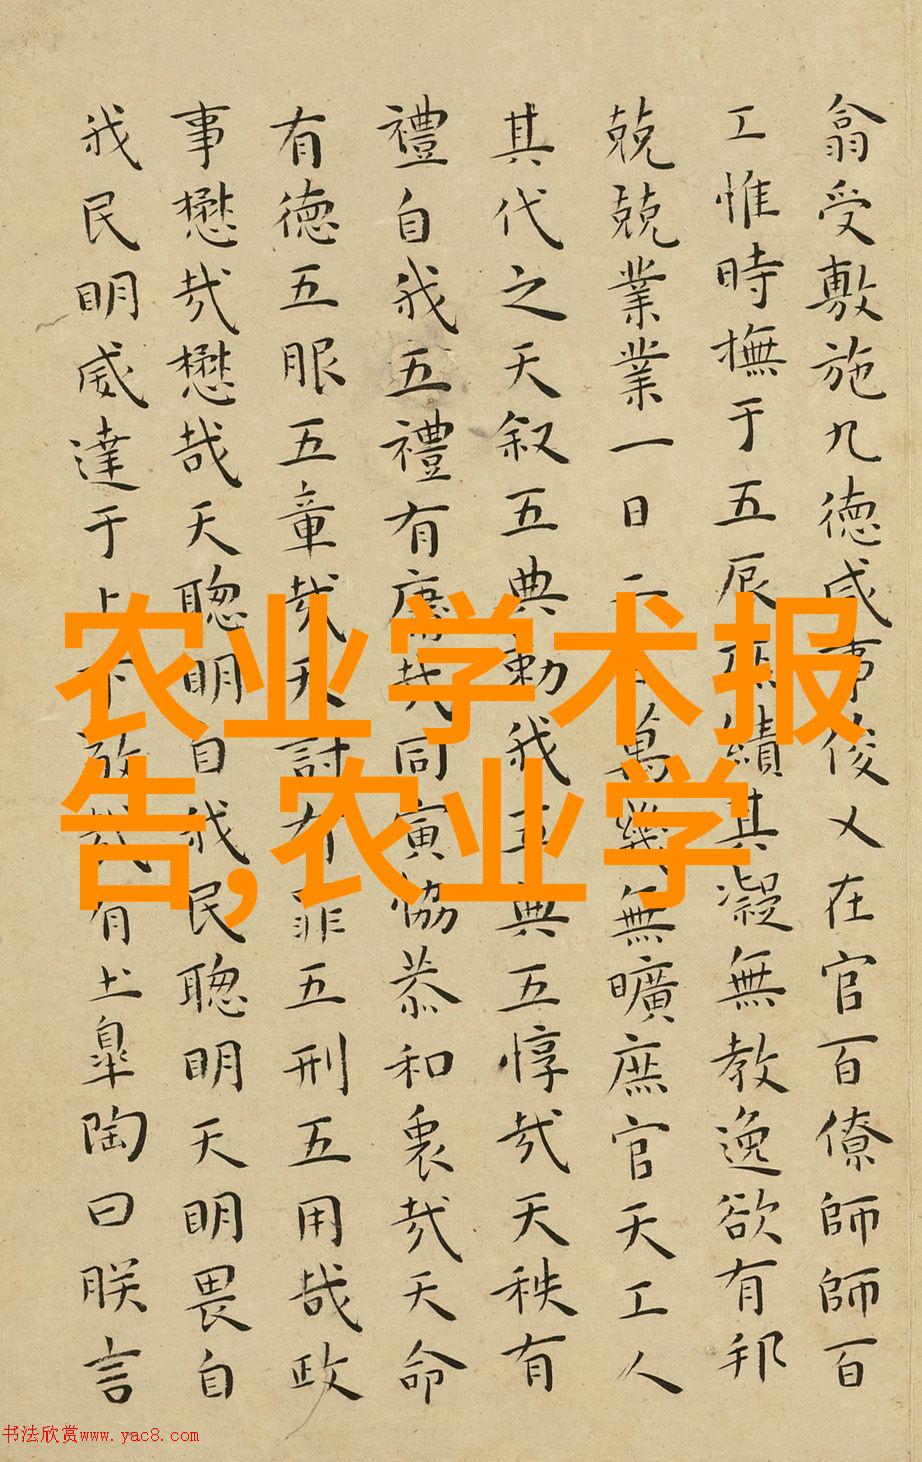 翕受敷施九德咸事俊乂在官百僚師師百
工惟時撫于五辰庶績其凝無教逸欲有邦
兢兢業業一日二日萬幾無曠庶官天工人
其代之天叙五典勅我五典五惇哉天秩有
禮自我五禮有庸哉同寅協恭和衷哉天命
有德五服五章哉天討有罪五刑五用哉政
事懋哉懋哉天聰明自我民聰明天明畏自
我民明威達于上下敬哉有土皋陶曰朕言
农业学术报
告,农业学
书法欣赏www.yac8.com